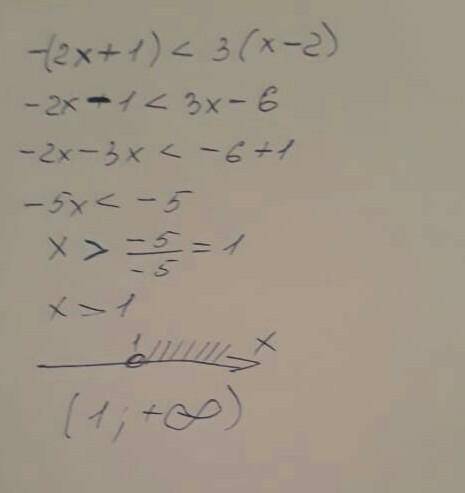 -(2x+1) < 3(x-2)
-2x-1 < 3x-6
-2x-3x < -6+1
-5x < -5
x > -5/-5 = 1
x > 1
1 x
(1; +∞)